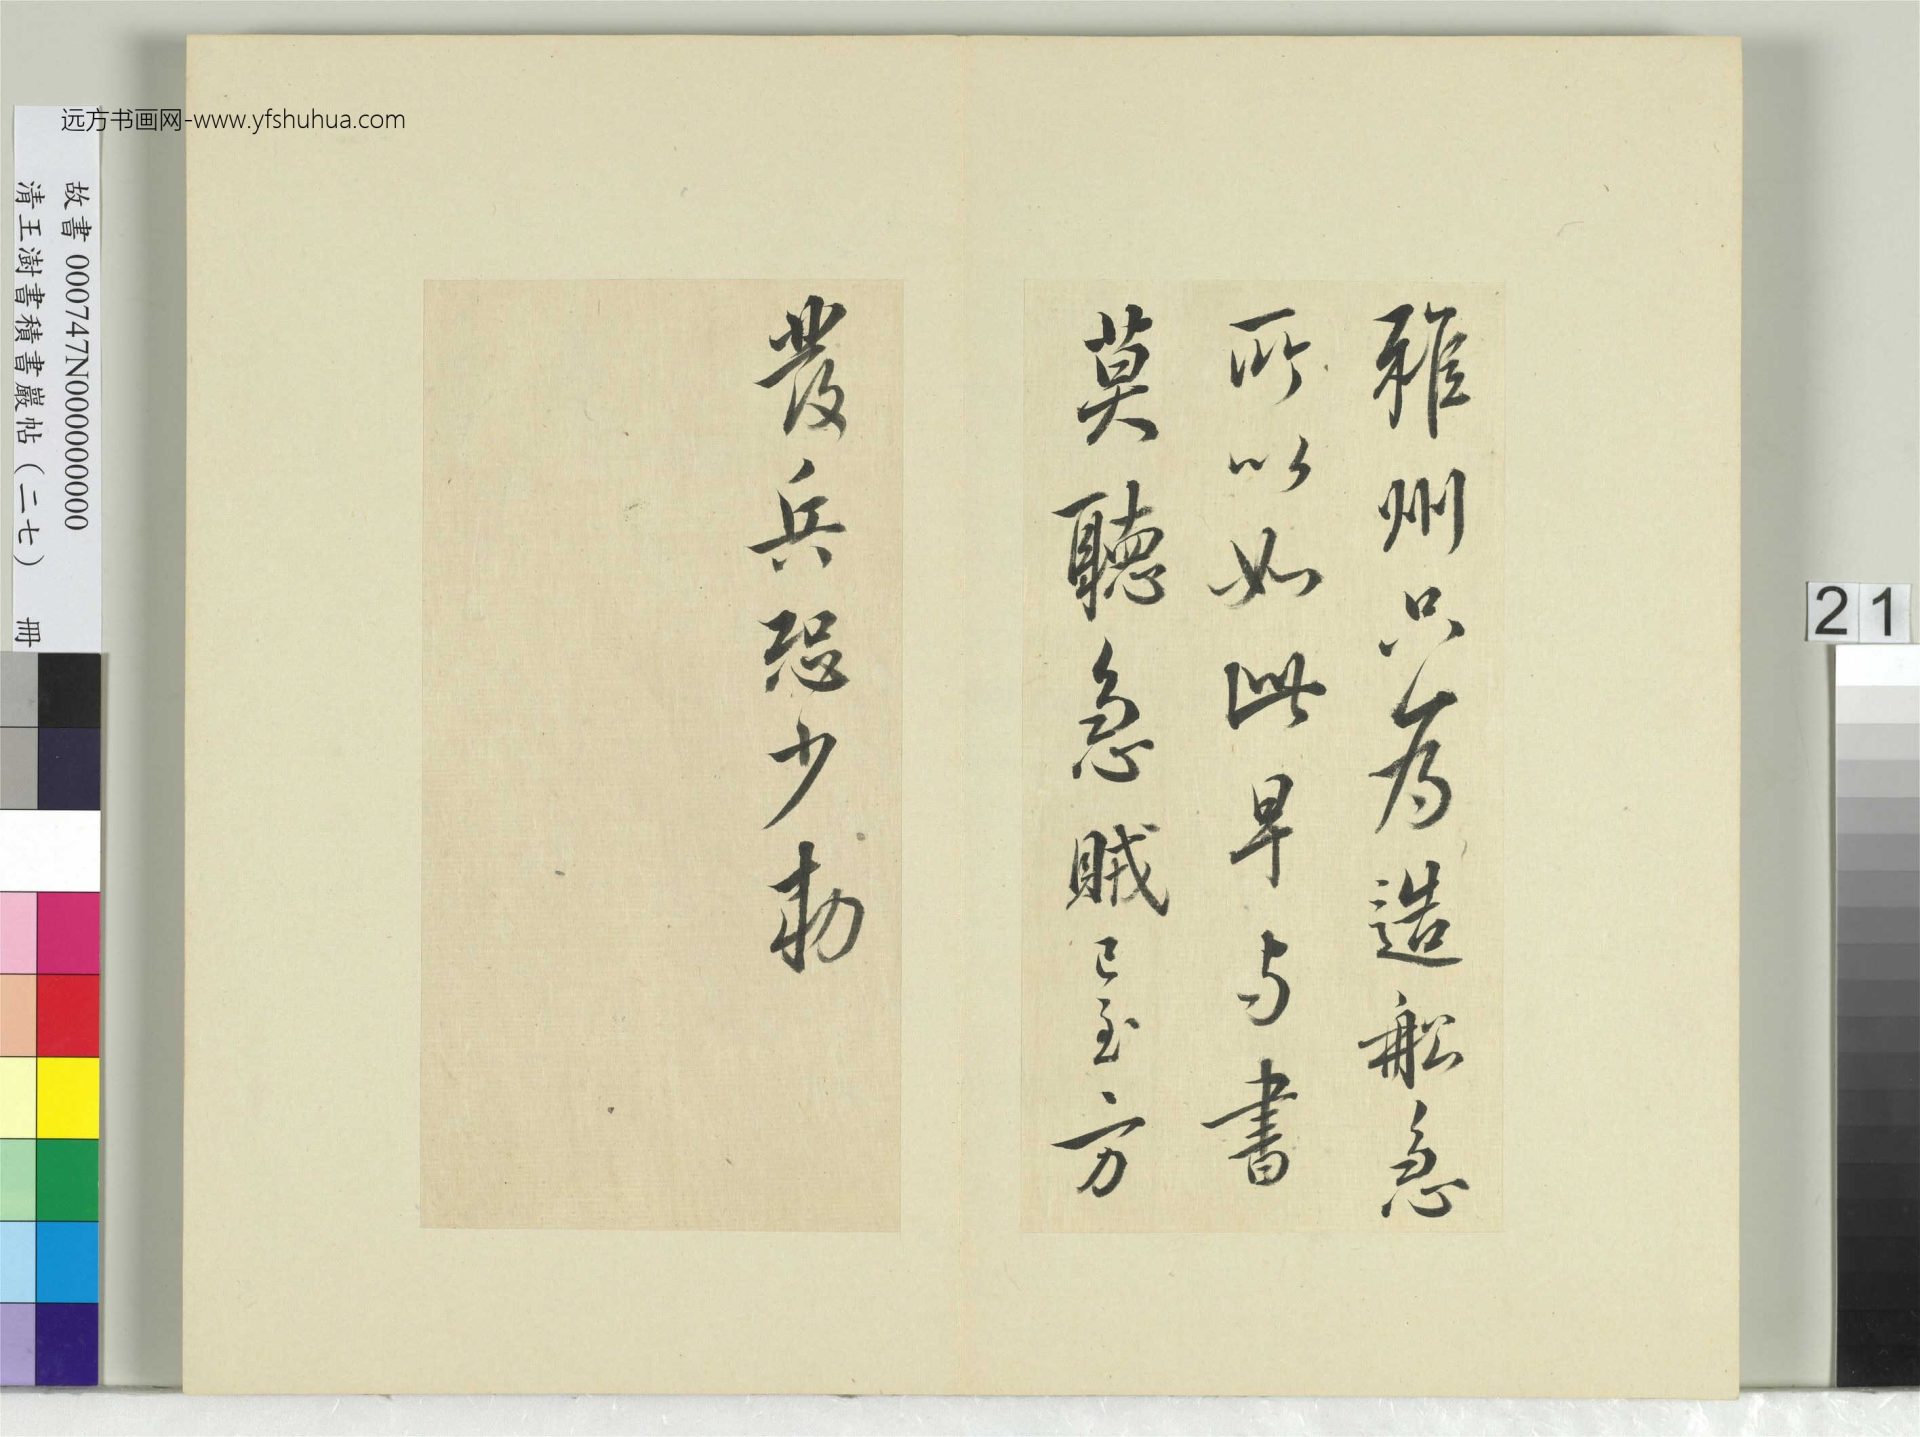 雅州只為造船急
所以如此早与書
莫聽急賊已至方
發兵恐少勅
远方书画网-www.yfshuhua.com
故書 000747N000000000
清王澍書積書巖帖（二七） 冊
21